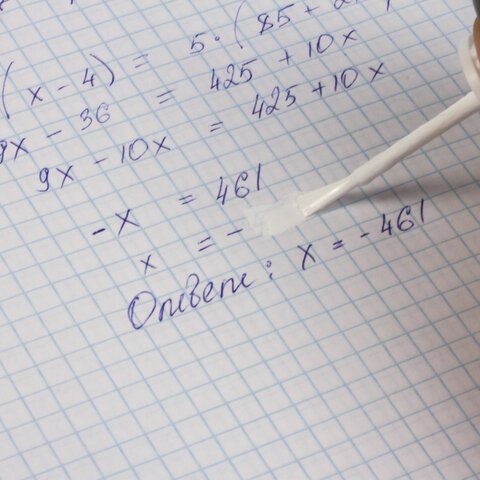 (x - 4) = 5·(85 + 2
9x - 36 = 425 + 10x
9x - 10x = 425 + 10x
-x = 461
x = -
Ответ: x = -461